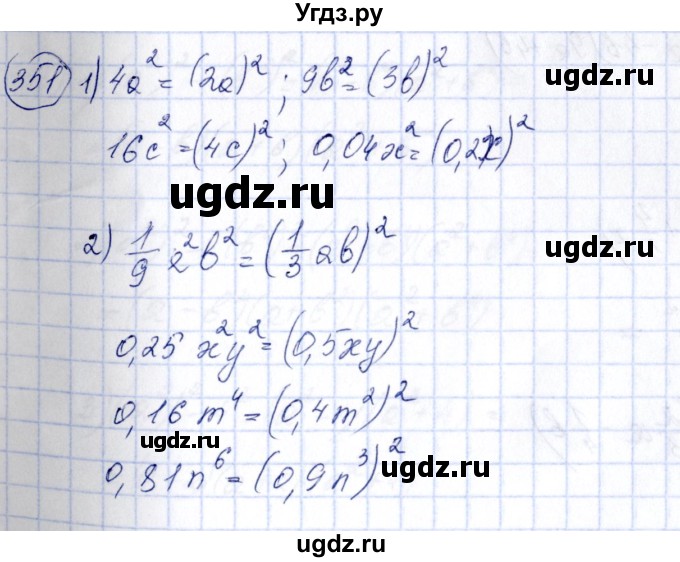 Угдз.ру
351 1) 4a² = (2a)² ; 9b² = (3b)²
ugdz.ru
16c² = (4c)² ; 0,04x² = (0,2x)²
ugdz.ru
2) 1/9 a²b² = (1/3 ab)²
ugdz.ru
0,25 x²y² = (0,5xy)²
0,16 m⁴ = (0,4m²)²
ugdz.ru
0,81n⁶ = (0,9n³)²
ugdz.ru
ugdz.ru